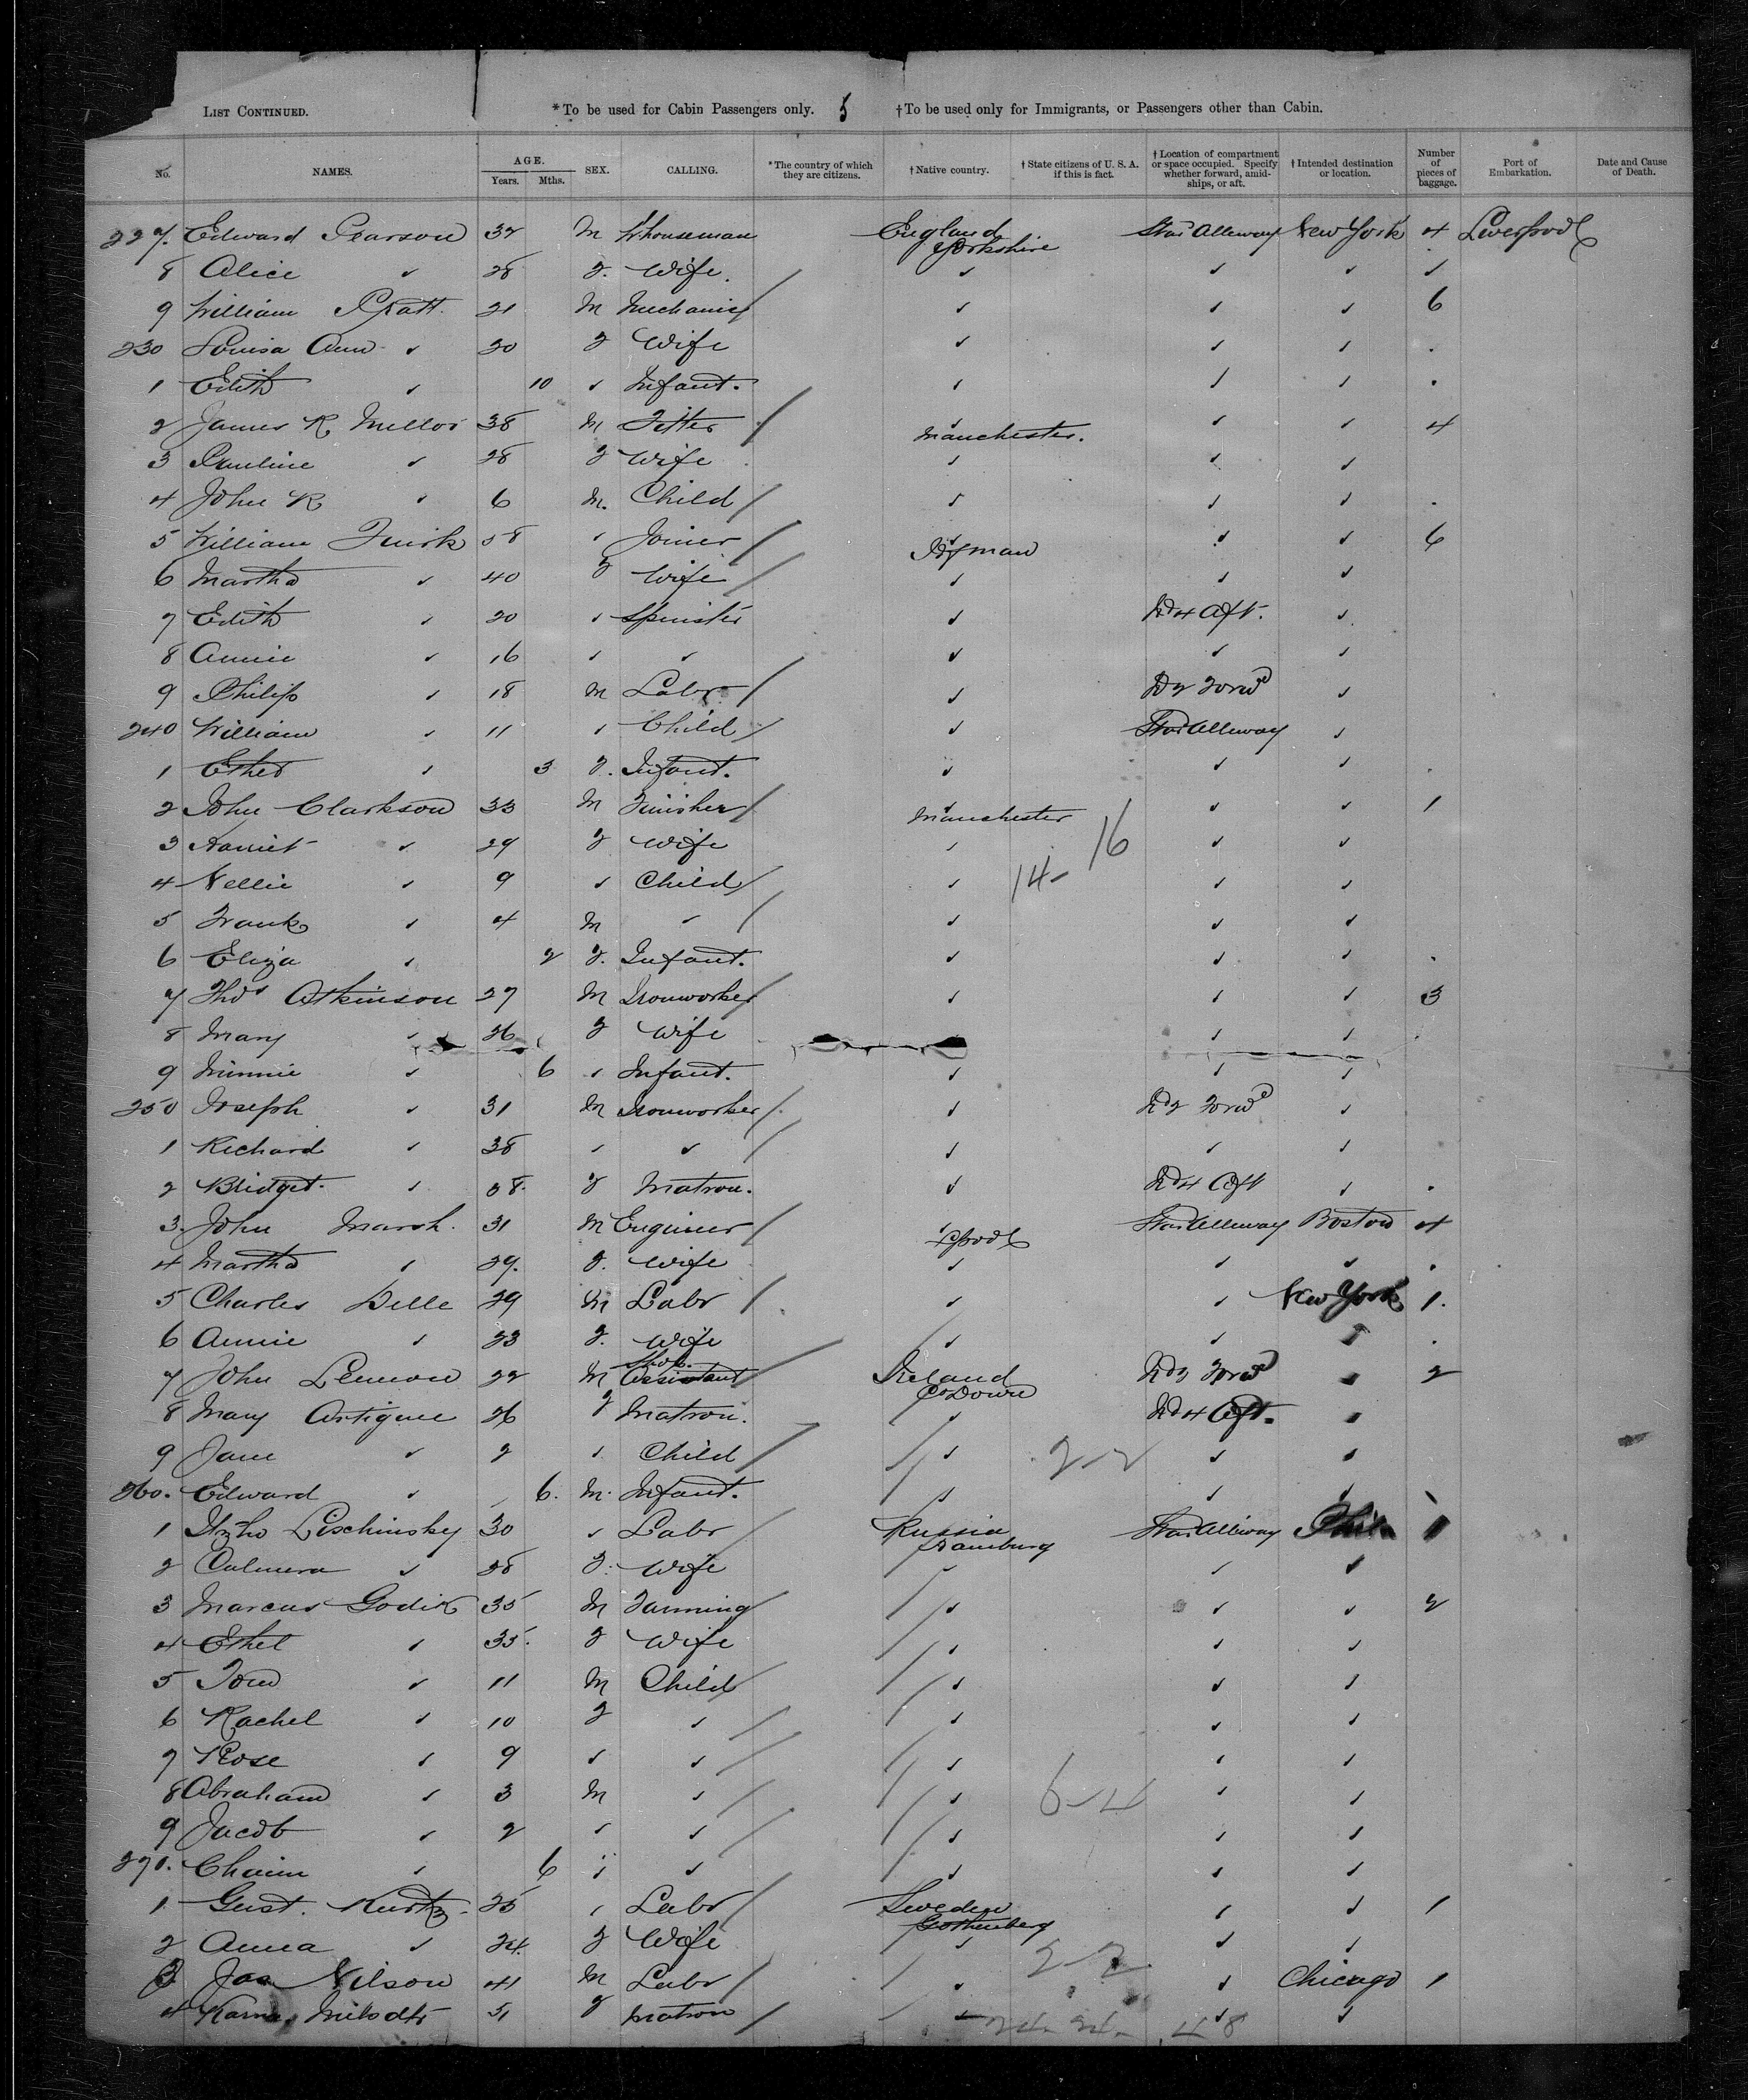 LIST CONTINUED. *To be used for Cabin Passengers only. 5 †To be used only for Immigrants, or Passengers other than Cabin.
No. NAMES. AGE. Years. Mths. SEX. CALLING. *The country of which they are citizens. †Native country. †State citizens of U. S. A. if this is fact. †Location of compartment or space occupied. Specify whether forward, amidships, or aft. †Intended destination or location. Number of pieces of baggage. Port of Embarkation. Date and Cause of Death.
227. Edward Pearson 32 M Whouseman England Yorkshire Star Alleway New York 4 Liverpool
8 Alice ✓ 28 F. Wife. ✓ ✓ ✓ ✓
9 William Pratt. 21 M Mechanic ✓ ✓ ✓ 6
230 Louisa Ann ✓ 20 F Wife ✓ ✓ ✓
1 Edith ✓ 10 ✓ Infant. ✓ ✓ ✓
2 James R Mellor 38 M Fitter ✓ Manchester. ✓ ✓ 4
3 Pauline ✓ 28 F Wife ✓ ✓ ✓
4 John R ✓ 6 M. Child ✓ ✓ ✓
5 William Quirk 58 ✓ Joiner ✓ Isf man ✓ ✓ 6
6 Martha ✓ 40 F Wife ✓ ✓ ✓
7 Edith ✓ 20 ✓ Spinster ✓ No 4 Aft. ✓
8 Annie ✓ 16 ✓ ✓ ✓ ✓ ✓
9 Philip ✓ 18 M Labr ✓ No 2 Forwd ✓
240 William ✓ 11 ✓ Child ✓ Star Alleway ✓
1 Ether ✓ 3 F. Infant. ✓ ✓ ✓
2 John Clarkson 33 M Finisher ✓ Manchester ✓ ✓ 1
3 Harriet ✓ 29 F Wife ✓ 16 ✓ ✓
4 Nellie ✓ 9 ✓ Child ✓ 14- ✓ ✓
5 Frank ✓ 4 M ✓ ✓ ✓ ✓
6 Eliza ✓ 2 F. Infant. ✓ ✓ ✓
7 Thos Atkinson 27 M Ironworker ✓ ✓ ✓ 3
8 Mary ✓ 26 F Wife ✓ ✓
9 Minnie ✓ 6 ✓ Infant. ✓ ✓ ✓
250 Joseph ✓ 31 M Ironworker ✓ No 2 Forwd ✓
1 Richard ✓ 38 ✓ ✓ ✓ ✓ ✓
2 Bridget ✓ 58. F Matron. ✓ No 4 Aft ✓
3. John Marsh. 31 M Engineer ✓ Lpool Star Alleway Boston 4
4 Martha ✓ 29. F. Wife ✓ ✓ ✓
5 Charles Delle 29 M Labr ✓ ✓ New York 1.
6 Annie ✓ 23 F. Wife ✓ ✓ ✓
7 John Lennon 22 M Shop. Assistant Ireland Co Down No 2 Forwd ✓ 2
8 Mary Artigue 26 F Matron. ✓ No 4 Aft. ✓
9 Jane ✓ 2 ✓ Child ✓ 2-2 ✓ ✓
260. Edward ✓ 6. M. Infant. ✓ ✓ ✓
1 Lischinsky 30 ✓ Labr Russia Hamburg Star Alleway Phila 1
2 ✓ 28 F. Wife ✓ ✓
3 Marcus Godik 35 M Farming ✓ ✓ ✓ 2
4 Ethel ✓ 35. F Wife ✓ ✓ ✓
5 ✓ 11 M Child ✓ ✓ ✓
6 Rachel ✓ 10 F ✓ ✓ ✓ ✓
7 Rose ✓ 9 ✓ ✓ ✓ ✓ ✓
8 Abraham ✓ 3 M ✓ ✓ 6-4 ✓ ✓
9 Jacob ✓ 2 ✓ ✓ ✓ ✓ ✓
270. Chaim ✓ 6 ✓ ✓ ✓ ✓ ✓
1 Gust. Kurtz 25 ✓ Labr Sweden Gothenberg ✓ ✓ 1
2 Anna ✓ 24. F Wife ✓ ✓ ✓
3 Jas Nilson 41 M Labr ✓ 2-2 ✓ Chicago 1
4 Karna 51 F Matron ✓ 24- 24- 48 ✓ ✓